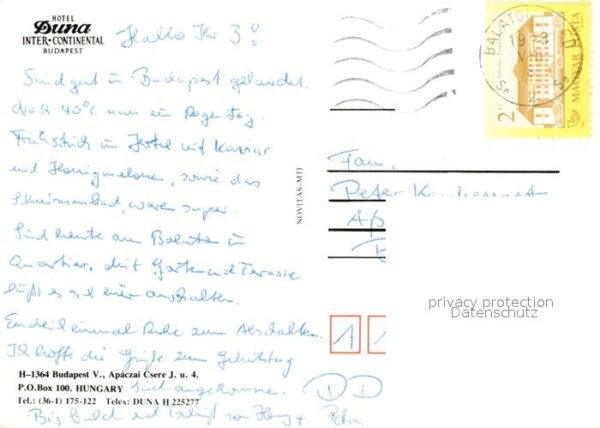 HOTEL
Duna
INTER·CONTINENTAL
BUDAPEST
Hallo Ihr 3!
Sind gut in Budapest gelandet.
Nach 40°C nun ein Regentag.
Frühstück im Hotel mit Kaviar
und Honigmelonen, sowie das
Schwimmbad, waren super.
Sind heute am Balaton im
Quartier, mit Garten und Terrasse
läßt es sich hier aushalten.
Endlich einmal Ruhe zum Abschalten.
Ich hoffe die Grüße zum Geburtstag
H-1364 Budapest V., Apáczai Csere J. u. 4.
P.O.Box 100. HUNGARY
sind angekommen.
Tel.: (36-1) 175-122 Telex: DUNA H 225277
Bis bald
NOVITAS-MTI
BALATON
19
VII
2
MAGYAR POSTA
Fam.
Peter
1
1
privacy protection
Datenschutz